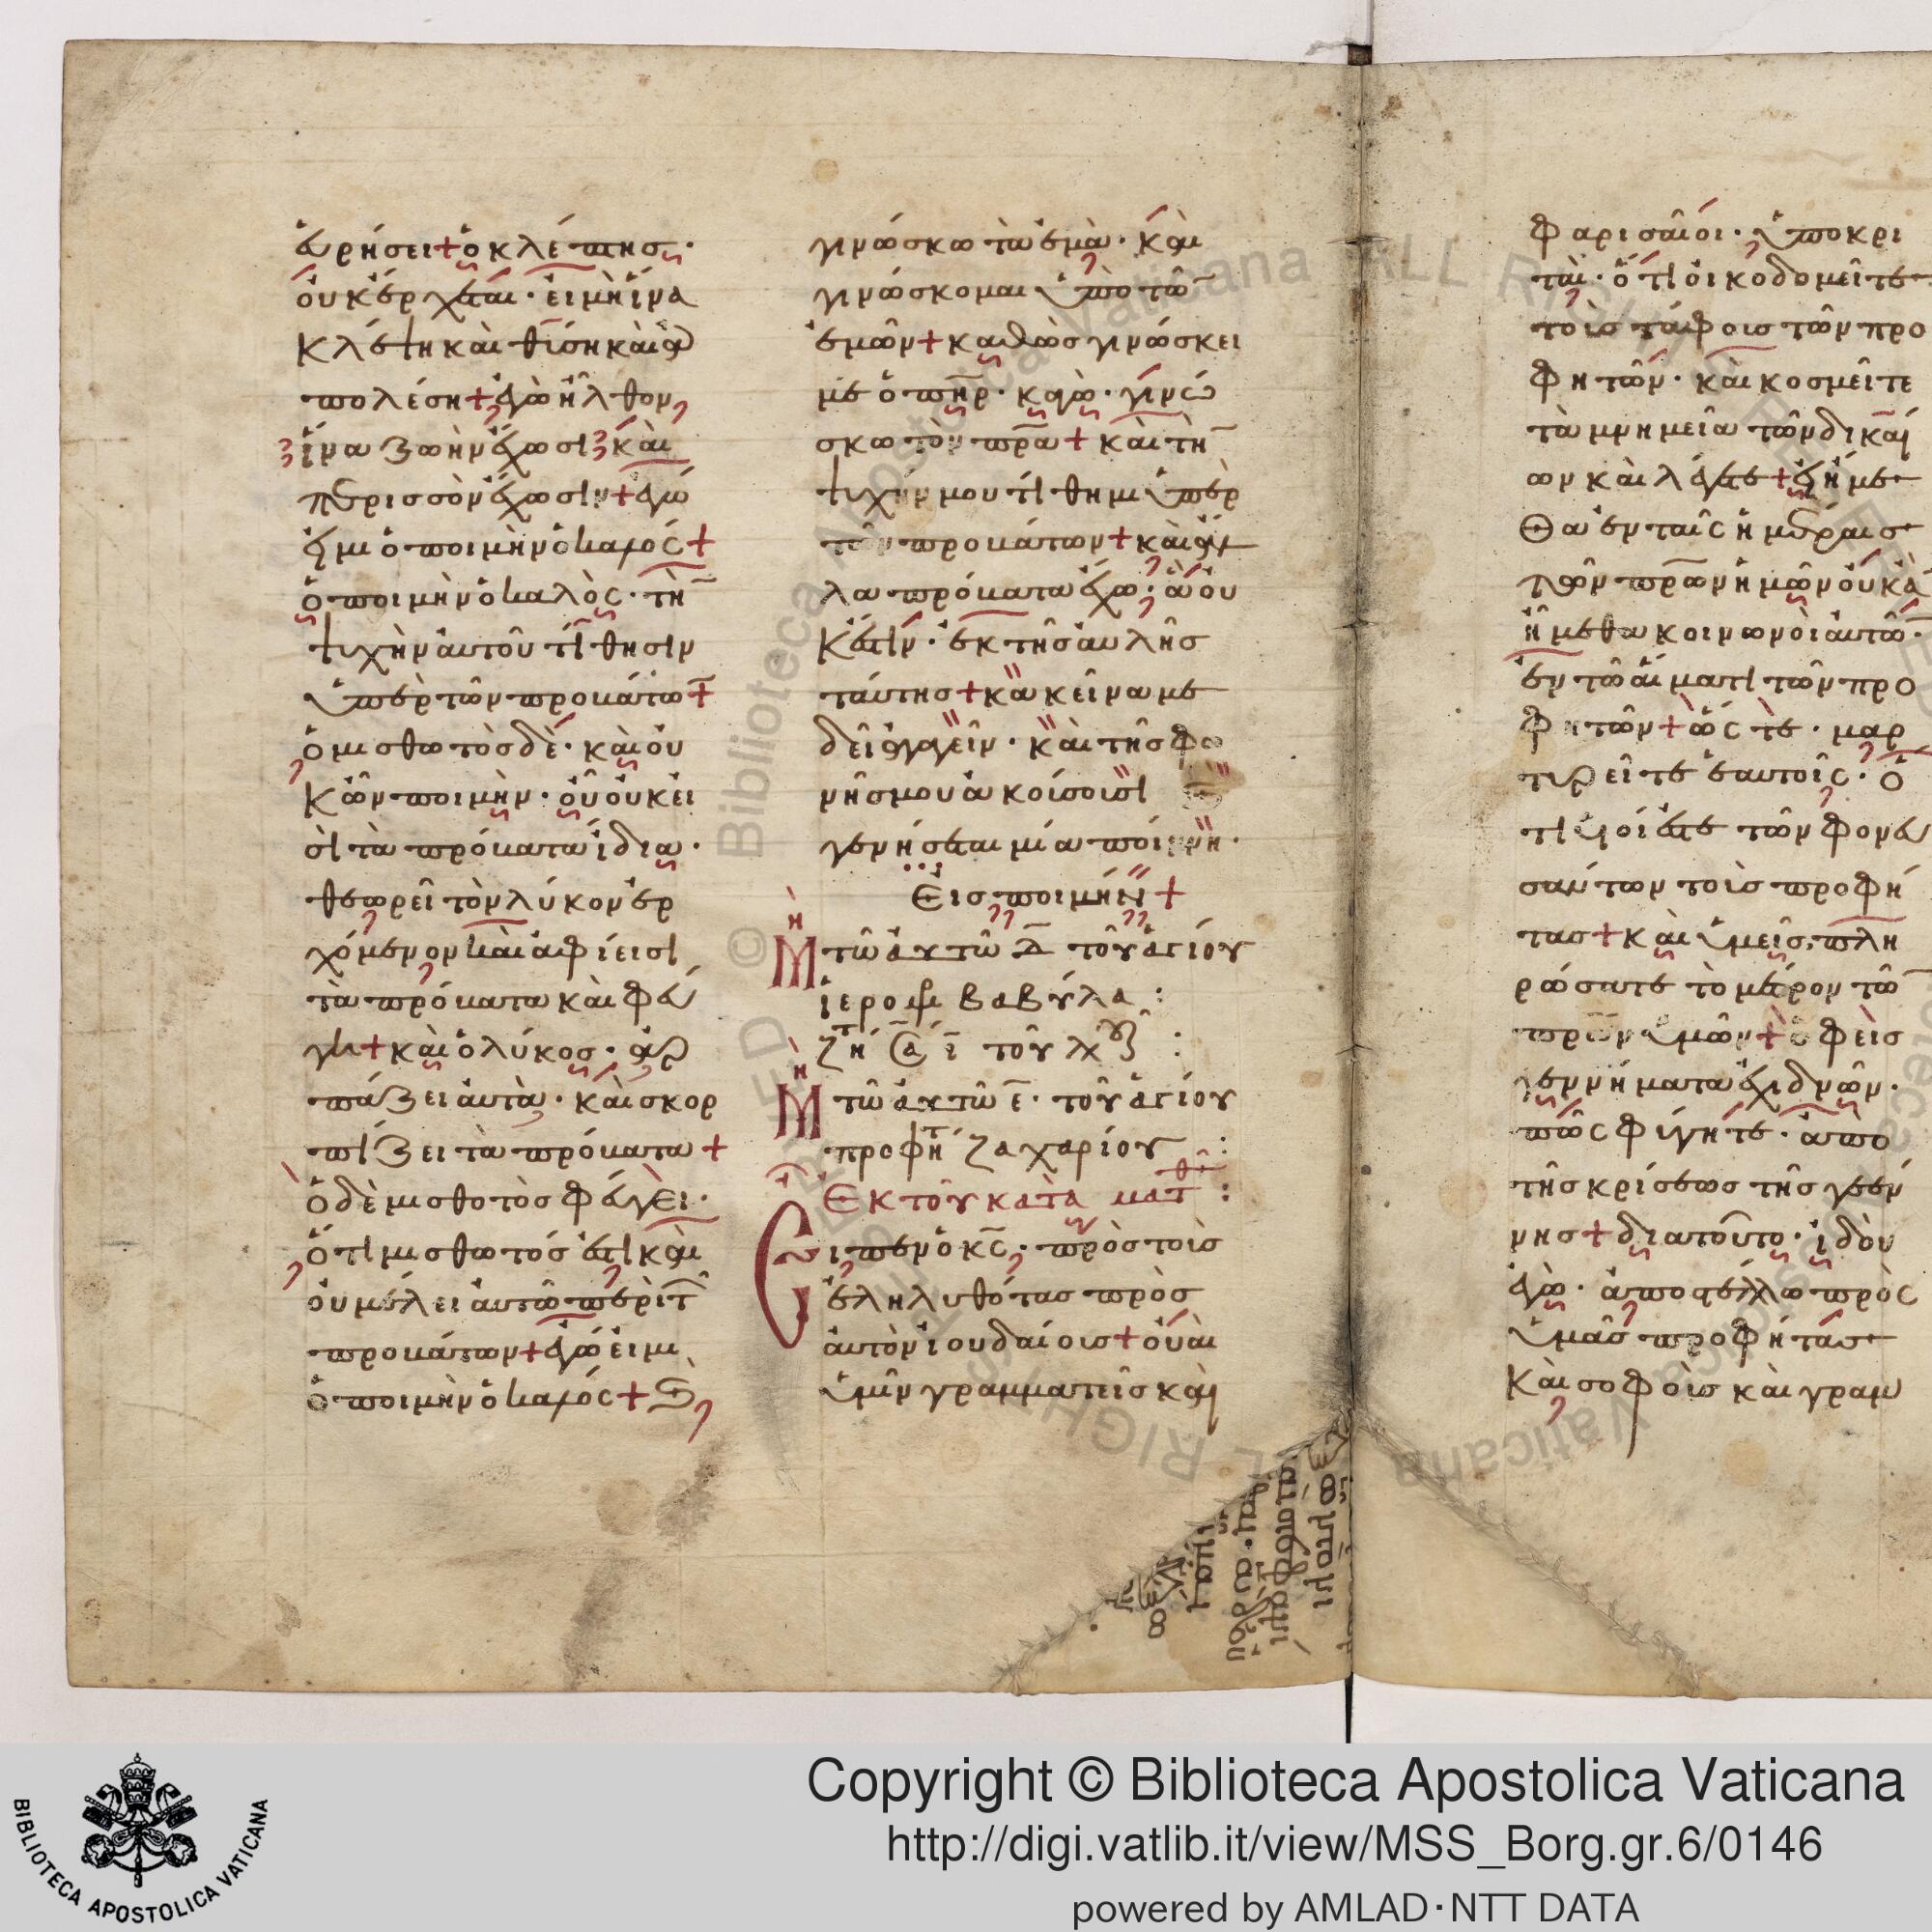 εὑρήσει + ὁ κλέπτης ·
οὐκ έρχεται · εἰ μὴ ἵνα
κλέψη καὶ θύση καὶ ἀ
πολέση + ἐγὼ ἦλθον
ἵνα ζωὴν ἔχωσι καὶ
περισσὸν ἔχωσιν + ἐγώ
εἰμι ὁ ποιμὴν ὁ καλός +
ὁ ποιμὴν ὁ καλὸς · τὴ̄
ψυχὴν αὐτοῦ τίθησιν
ὑπὲρ τῶν προβάτω̄ +
ὁ μισθωτὸς δὲ · καὶ οὐ
κ ὢν ποιμὴν · οὗ οὐκ εἰ
σὶ τὰ πρόβατα ἴδια ·
θεωρεῖ τὸν λύκον ἐρ
χόμενον καὶ ἀφίεισι
τὰ πρόβατα καὶ φεύ
γει + καὶ ὁ λύκος · ἁρ
πάζει αὐτὰ · καὶ σκορ
πίζει τὰ πρόβατα +
ὁ δὲ μισθοτὸς φεύγει ·
ὅτι μισθωτός ἐστι καὶ
οὐ μέλει αὐτῶ περὶ τ̑
προβάτων + ἐγώ εἰμι
ὁ ποιμὴν ὁ καλός + Ϛ
γινώσκω τὰ ἐμὰ · καὶ
γινώσκομαι ὑπὸ τῶ̄
ἐμῶν + καθὼς γινώσκει
με ὁ πη̄ρ · κἀγὼ · γινώ
σκω τὸν πρ̄α + καὶ τὴ̄
ψυχήν μου τίθημι ὑπὲρ
τῶν προβάτων + καὶ ἄλ
λα πρόβατα ἔχω · ἃ οὐ
κ ἔστιν · ἐκ τῆς αὐλῆς
ταύτης + κἀκεῖνα με
δεῖ ἀγαγεῖν · καὶ τῆς φω
νῆς μου ἀκούσουσι
γενήσεται μία ποίμνη ·
εἷς ποιμήν +
Μη τῶ αὐτῶ Δ τοῦ ἁγίου
ἱερομ βαβύλα :
τοῦ
Μη τῶ αὐτῶ ε · τοῦ ἁγίου
προφητ ζαχαρίου :
Εκ τοῦ κατὰ ματθ :
Ειπεν ὁ κ̄ς · πρὸς τοὺς
ἐληλυθότας πρὸς
αὐτὸν ἰουδαίους + οὐαὶ
ὑμῖν γραμματεῖς καὶ
φαρισαῖοι · ὑποκρι
ταὶ · ὅτι οἰκοδομεῖτε
τοὺς τάφους τῶν προ
φητῶν · καὶ κοσμεῖτε
τὰ μνημεῖα τῶν δικαί
ων καὶ λέγετε + εἰ ἤμε
θα ἐν ταῖς ἡμέραις
τῶν πρ̄ων ἡμῶν οὐκ ἂ
ἤμεθα κοινωνοὶ αὐτῶ̄ ·
ἐν τῶ αἵματι τῶν προ
φητῶν + ὥς τε · μαρ
τυρεῖτε ἑαυτοῖς · ὅ
τι υἱοί ἐστε τῶν φονευ
σάντων τοὺς προφή
τας + καὶ ὑμεῖς, πλη
ρώσατε τὸ μέτρον τῶ̄
πρ̄ων ὑμῶν + ὄφεις
γεννήματα ἐχιδνῶν ·
πῶς φύγητε · ἀπὸ
τῆς κρίσεως τῆς γεέν
νης + διατοῦτο · ἰδοὺ
ἐγὼ · ἀποστέλλω πρὸς
ὑμᾶς προφήτας
καὶ σοφοὺς καὶ γραμ
Copyright © Biblioteca Apostolica Vaticana
http://digi.vatlib.it/view/MSS_Borg.gr.6/0146
powered by AMLAD·NTT DATA
BIBLIOTECA APOSTOLICA VATICANA